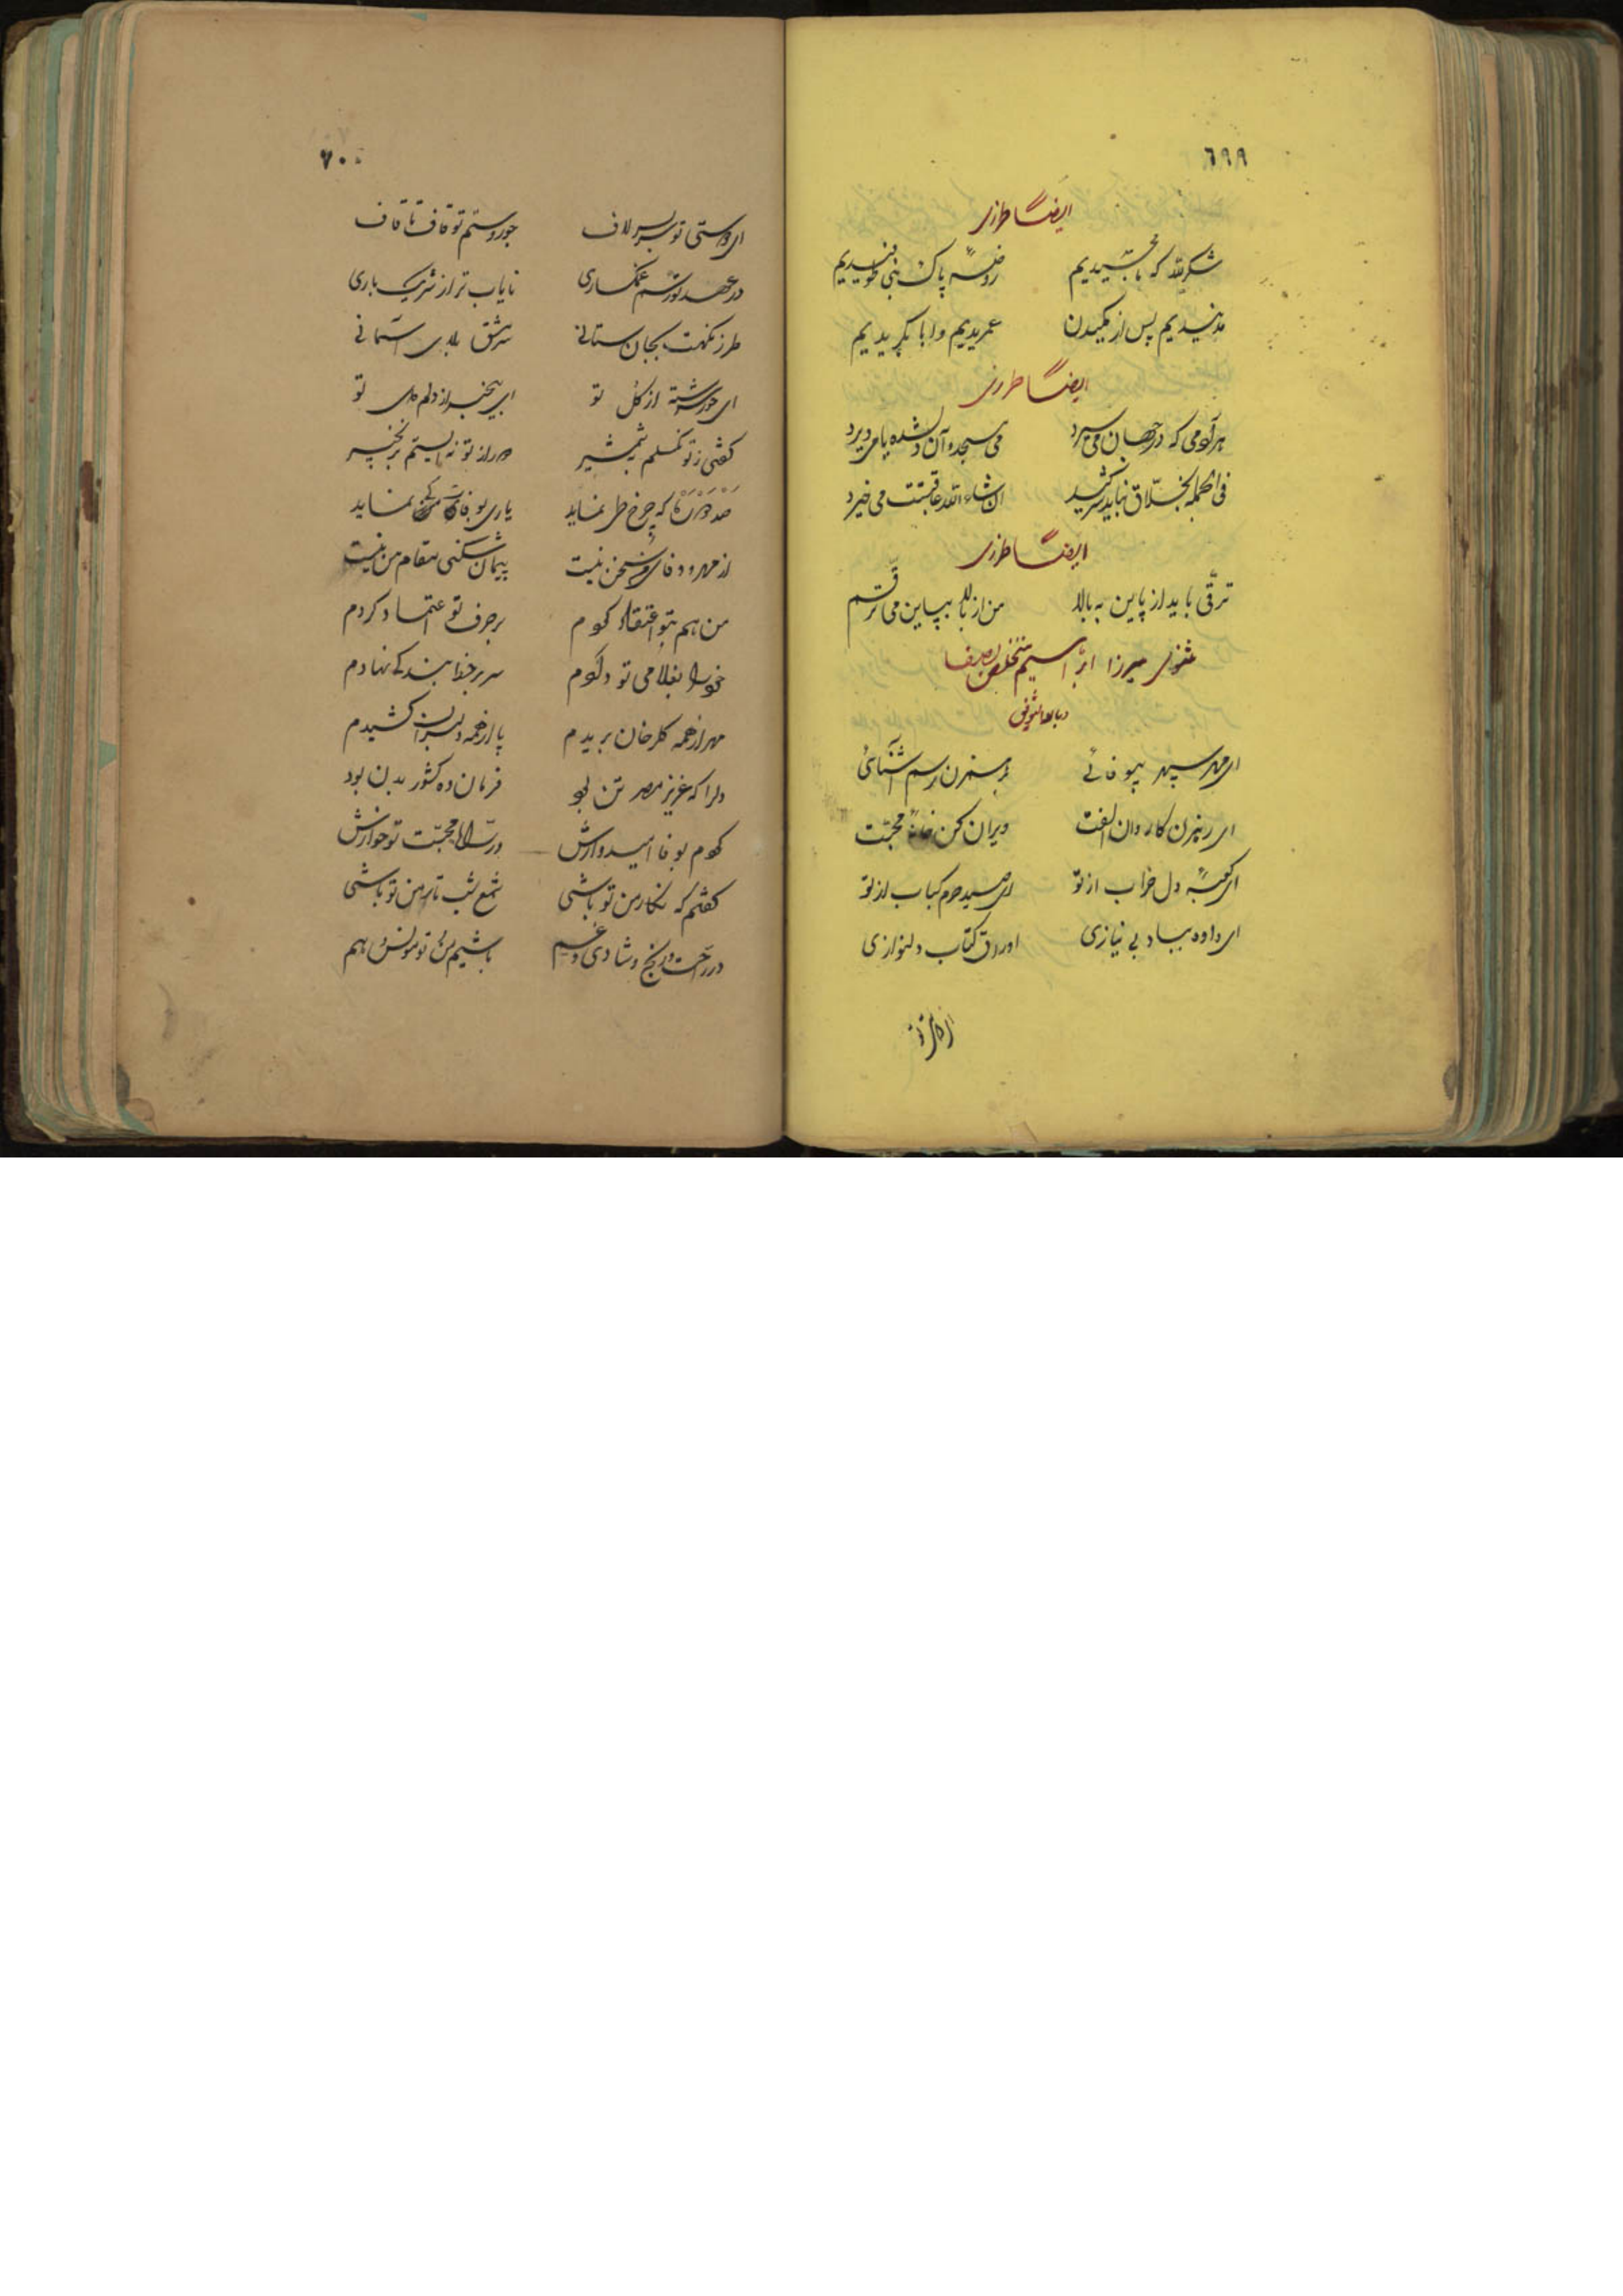 ٦٩٩
ایضاً طرزی
شکر لله که ما حجّیدیم روضهٔ پاک نبی طوفیدیم
مدنیدیم پس از مکیدن عمریدیم و ابا بکریدیم
ایضاً طرزی
هر آدمی که در جهان می
فی الجمله بخلّاق نباید ان شاء الله عاقبتت می خیرد
ایضاً طرزی
ترقّی باید از پاین به بالا من از بالا بپاین می ترقّم
مثنوی میرزا ابراهیم متخلص
و بالله التوفیق
ای مهر سپهر بیوفائی بر هم زن رسم آشنائی
ای رهزن کاروان الفت ویران کن خانهٔ محبّت
ای کعبهٔ دل خراب از تو ای صید حرم کباب از تو
ای داده بباد بی نیازی اوراق کتاب دلنوازی
٧٠٠
ای دوستی تو سربسر لاف جور و ستم تو قاف تا قاف
در عهد تو رسم غمگساری نایاب تر از شریک باری
طرز نگهت بجان ستانی سرمشق بلای آسمانی
ای جور سرشته از گل تو ای بیخبر از دلم دل تو
گفتی ز تو نگسلم بشمشیر
صد که چرخ طی نماید یاری بوفای نماید
از مهر و وفا سخن نیست پیمان شکنی مقام من نیست
من هم بتو اعتقاد کردم بر حرف تو اعتماد کردم
خود را بغلامی تو دادم سر بر خط بندگی نهادم
مهر از همه گلرخان بریدم پا از همه دلبران کشیدم
دل را که عزیز مصر تن بود فرمان ده کشور بدن بود
کردم بوفا امیدوارش در راه محبّت تو خوارش
گفتم که نگار من تو باشی شمع شب تار من تو باشی
در راحت و رنج و شادی و غم باشیم من و تو مونس هم